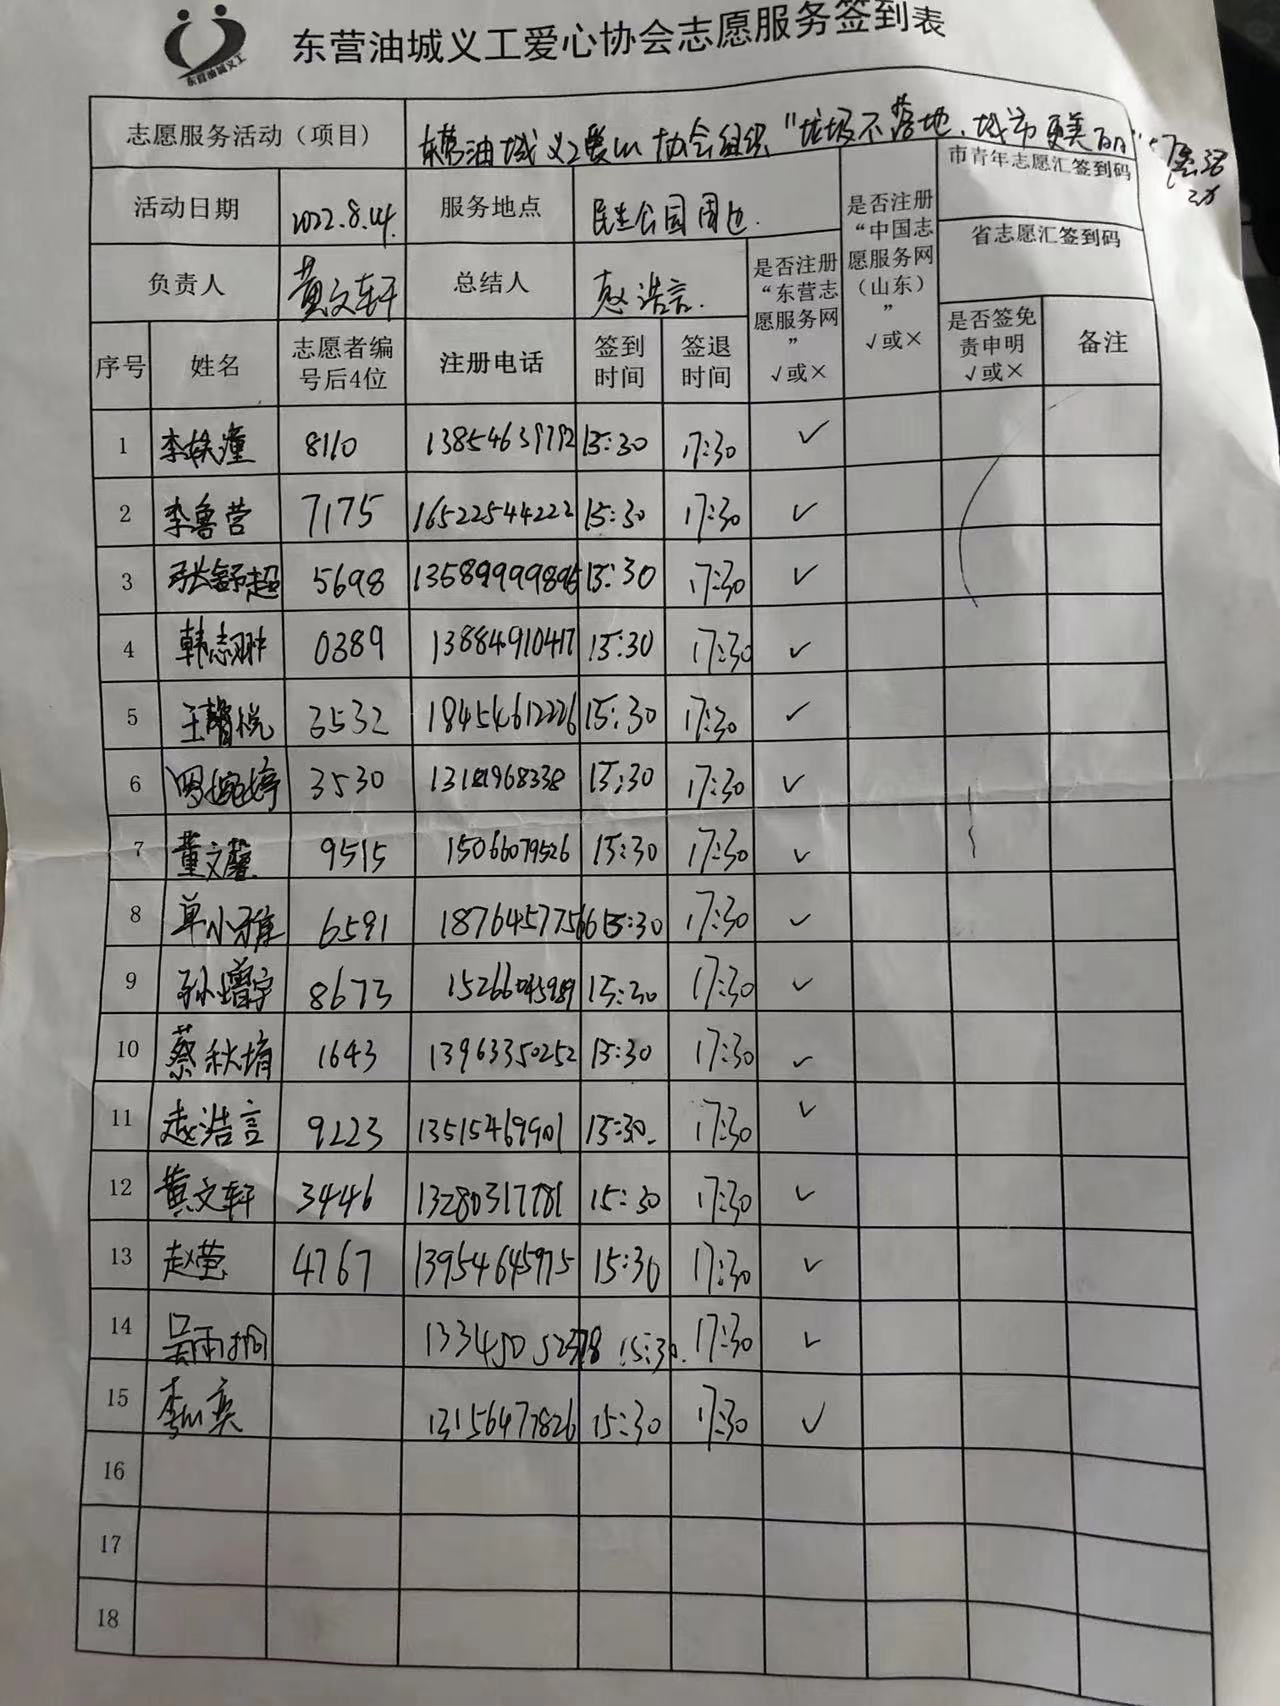 东营油城义工
东营油城义工爱心协会志愿服务签到表
志愿服务活动（项目） 东营油城义工爱心协会组织“垃圾不落地、城市更美丽”志愿活动
活动日期 2022.8.14. 服务地点 民生公园周边. 是否注册“东营志愿服务网” √或× 是否注册“中国志愿服务网（山东）” √或× 市青年志愿汇签到码
负责人 黄文轩 总结人 赵浩言. 省志愿汇签到码
序号 姓名 志愿者编号后4位 注册电话 签到时间 签退时间 是否签免责申明 √或× 备注
1 李 潼 8110 13854639792 15:30 17:30 ✓
2 李鲁营 7175 16522544222 15:30 17:30 ✓
3 张舒超 5698 15:30 17:30 ✓
4 韩志翀 0389 13884910417 15:30 17:30 ✓
5 王馨悦 3532 18454612226 15:30 17:30 ✓
6 罗婉婷 3530 15:30 17:30 ✓
7 董文馨 9515 15066079526 15:30 17:30 ✓
8 单小雅 6591 18764577566 15:30 17:30 ✓
9 孙增宇 8673 15:30 17:30 ✓
10 蔡秋堉 1643 13963350252 15:30 17:30 ✓
11 赵浩言 9223 13515469901 15:30. 17:30 ✓
12 黄文轩 3446 13280317781 15:30 17:30 ✓
13 赵萤 4767 13954645975 15:30 17:30 ✓
14 吴雨桐 15:30. 17:30 ✓
15 李 奕 13156477826 15:30 17:30 ✓
16
17
18